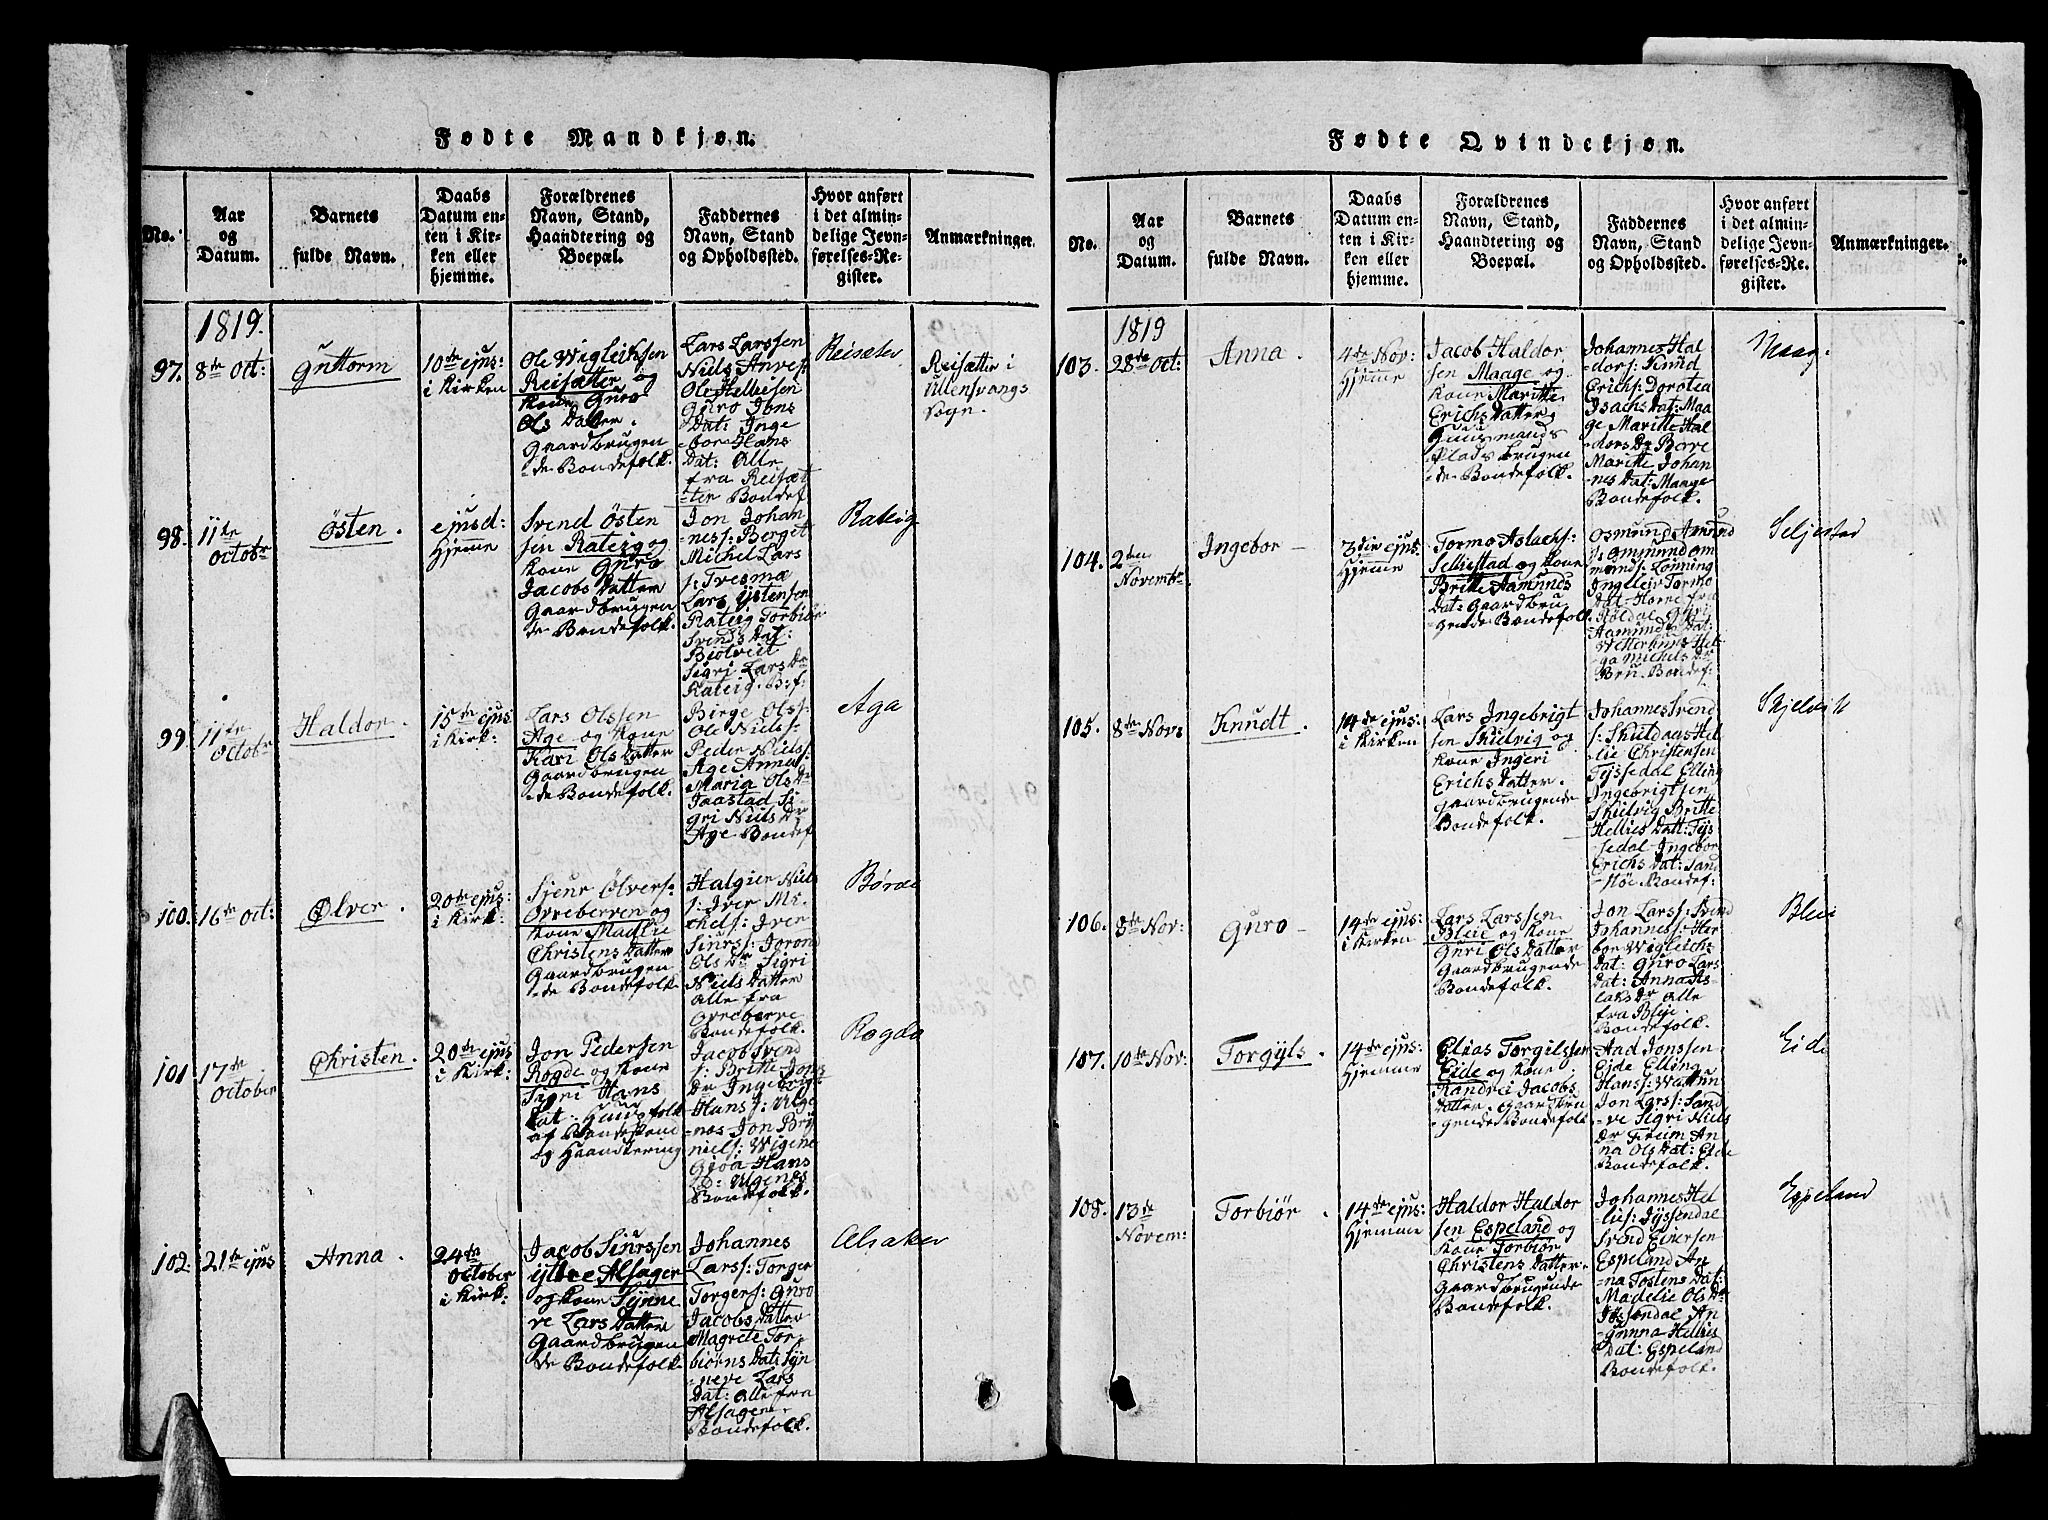 Fødte Mandkjøn.
No.
Aar
og
Datum.
Barnets
fulde Navn.
Daabs
Datum en-
ten i Kir-
ken eller
hjemme.
Forældrenes
Navn, Stand,
Haandtering og
Boepæl.
Faddernes
Navn, Stand
og Opholdssted.
Hvor anført
i det almin-
delige Jevn-
førelses-Re-
gister.
Anmærkninger.
1819.
97.
8de Oct:
Guttorm
10de ejus:
i Kirken
Ole Wigleiksen
Reisætter og
Kone Guro
Ols Datter.
Gaardbrugen
-de Bondefolk.
Lars Larssen
Niels
Ole Helliesen
Guro Jons
Dat: Inge
-bor Hans
Dat: Alle
fra Reisæt
-ter Bondef
Reisæter
Reisætter i
Ullensvangs
Sogn.
98.
11te
Octobr
Østen.
ejusd:
Hjemme
Svend Østen
sen Rateig og
Kone Guro
Jacobs Datter
Gaardbrugen
de Bondefolk.
Jon Johan
ness: Berget
Michel Lars
s: Tresmæ
Lars Ystensen
Rateig Torbiør
Svends Dat:
Biotveit
Sigri Lars Dr
Rateig. B:f:
Rateig
99.
11te
Octobr
Haldor.
15de ejus:
i Kirk:
Lars Olssen
Age og Kone
Kari Ols Datter
Gaardbrugen
-de Bondefolk.
Birge Olss:
Ole Niels:
Peder Nielss:
Age Anna
Maria Ols Dr
Jaastad Si
gri Niels Dr
Age Bondef
Aga
100.
16de Oct:
Ølver.
20de ejus:
i Kirk:
Sjeur Ølvers:
Øvreberven og
Kone Madlie
Christens Datter
Gaardbrugen
-de Bondefolk
Halgier Niels
s: Iver Mi
chels: Iver
Siurs: Jorond
Ols Dr Sigri
Niels Datter
Alle fra
Øvreberve
Bondefolk.
Børve
101.
17de
October
Christen.
20de ejus
i Kirk:
Jon Pedersen
Rogde og Kone
Sigri Hans
Dat: Huusfolk
af Bondestand
og Haandtering
Jacob Svend
s: Britte Jons
Dr Ingebrigt
Hans s: Ulge
-nes Jon Bry
niels: Wigene
Gioa Hans
D: Ulgenes
Bondefolk.
Rogda
102.
21de ejus
Anna.
24de
October
i Kirk:
Jacob Siurssen
ijttre Alsager
og Kone Synne
ve Lars Datter
Gaardbrugen
de Bondefolk.
Johannes
Larss: Torger
Torgers: Guro
Jacobs Datter
Magrete Tor
biørns Dat: Syn
-neve Lars
Dat: Alle fra
Alsagene
Bondefolk.
Alsaker
Fødte Qvindekjøn.
No.
Aar
og
Datum.
Barnets
fulde Navn.
Daabs
Datum en-
ten i Kir-
ken eller
hjemme.
Forældrenes
Navn, Stand,
Haandtering og
Boepæl.
Faddernes
Navn, Stand
og Opholdssted.
Hvor anført
i det almin-
delige Jevn-
førelses-Re-
gister.
Anmærkninger.
1819
103.
28de Oct:
Anna.
4de Nov:
Hjemme
Jacob Haldor
sen Maage og
Kone Maritte
Erichs Datter
Huusmands
Plads brugen
-de Bondefolk.
Johannes Hal
dors: Knud
Erichs: Dorotea
Isachs Dat: Maa
ge Maritte Hal
-dors Dr Berve
Maritte Johan
nes Dat: Maage
Bondefolk.
Maage
104.
2den
Novembr.
Ingebor
3die ejus:
Hjemme
Tormo Aslachs:
Selliestad og Kone
Britte Aamunds
Dat: Gaardbru
gende Bondefolk.
Osmund Amund
s: Omund
mands: Lønning
Ingeleiv Tormo
Dat: Horre fra
Røldal Guri
Aamunds Dat:
Hel
ga Michels Dr
Bru. Bondef:
Seljestad
105.
8de Nov:
Knudt.
14de ejus:
i Kirken
Lars Ingebrigt
sen Skielvig og
Kone Ingeri
Erichs Datter.
Gaardbrugende
Bondefolk.
Johannes Svend
s: Skieldaas Hel
lie Christensen
Tyssedal Elling
Ingebrigtsen
Skielvig Britte
Hellies Datt: Tys
sedal Ingebor
Erichs Dat: Sand
Bondef:
Skjelvik
106.
8de Nov:
Guro
14de ejus:
i Kirken
Lars Larssen
Bleie og Kone
Guri Ols Datter
Gaardbrugende
Bondefolk.
Jon Larss: Svend
Johannes: Her
bor Wigleich
Dat: Guro Lars
Dat: Anna As
laks Dr Alle
fra Bleje.
Bondefolk.
Bleie
107.
10de Nov:
Torgyls.
14de ejus:
Hjemme
Elias Torgilssen
Eide og Kone
Randvei Jacobs
Datter. Gaardbru
gende Bondefolk
Aad Jonssen
Eide Elling
Hans s:
Jon Larss: Sand
ve Sigri Niels
Dr An
na Ols Dat: Eide
Bondefolk.
Eide
108.
13de
Novem:
Torbiør.
14de ejus:
Hjemme
Haldor Haldor
sen Espeland og
Kone Torbiør
Christens Datter
Gaardbrugende
Bondefolk.
Johannes Hel
lies: Tyssendal
Svend Einersen
Espeland An
-na Tostens Dat:
Madelie Ols Dr
Tyssendal An
gunna Hellies
Dat: Espeland
Bondefolk.
Espeland